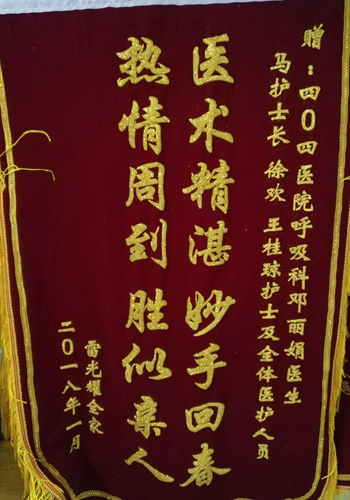 赠：四〇四医院呼吸科邓丽娟医生
马护士长 徐欢 王桂琼护士及全体医护人员
医术精湛 妙手回春
热情周到 胜似亲人
雷光耀全家
二〇一八年一月